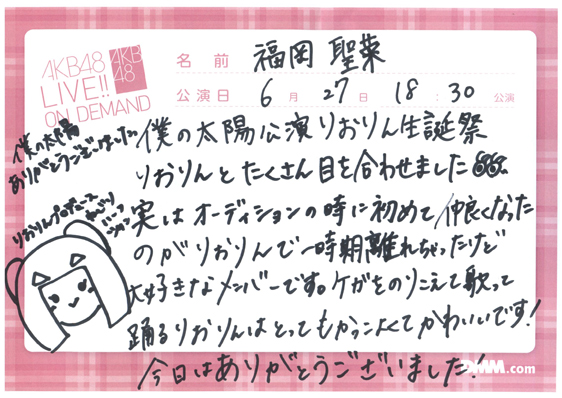 AKB48
LIVE!!
ON DEMAND
AKB
48
名前 福岡 聖菜
公演日 6月 27 日 18:30 公演
僕の太陽
ありがとうございました
僕の太陽公演りおりん生誕祭
りおりんとたくさん目を合わせました
りおりんプロデュース
実はオーディションの時に初めて仲良くなった
のがりおりんで一時期離れちゃったけど
大好きなメンバーです。ケガをのりこえて歌って
踊るりおりんはとってもかっこよくてかわいいです!
今日はありがとうございました!
DMM.com